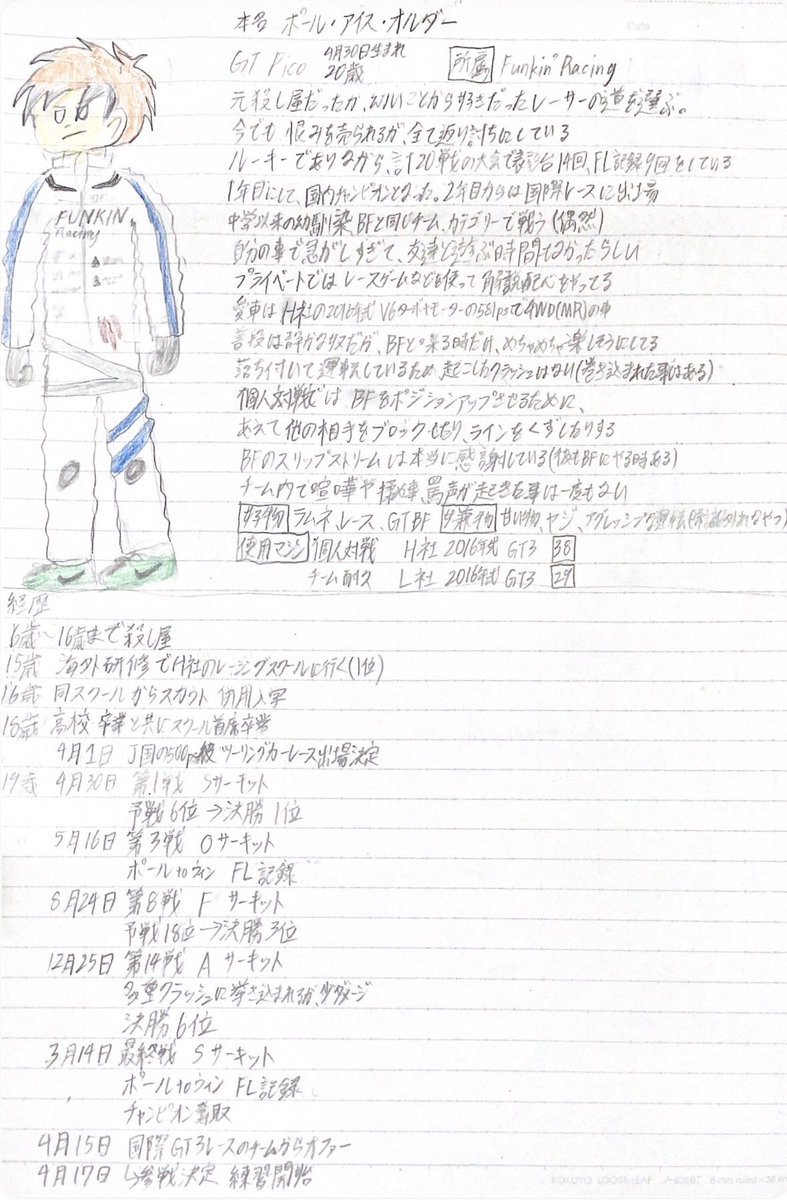 本名 ポール・アイス・オルダー
GT Pico 4月30日生まれ 20歳 所属 Funkin' Racing
元殺し屋だったが、幼いころから好きだったレーサーの道を選ぶ。
今でも恨みを売られるが、全て返り討ちにしている
ルーキーでありながら、計20戦の大会で表彰台14回、FL記録9回をしている
1年目にして、国内チャンピオンとなった。2年目からは国際レースに出場
中学以来の幼馴染、BFと同じチーム、カテゴリーで戦う(偶然)
自分の事で忙がしすぎて、友達と遊ぶ時間はなかったらしい
プライベートではレースゲームなども使って解説配心をやってる
愛車はH社の2016年式V6ターボ+モーターの581psで4WD(MR)の車
普段は静かクサズだが、BFと乗る時だけ、めちゃめちゃ楽しそうにしてる
落ち付いて運転しているため、起こしたクラッシュはない(巻き込まれた事はある)
個人対戦では BFをポジションアップさせるために、
あえて他の相手をブロックせたり、ラインをくずしたりする
BFのスリップストリームは本当に感謝している(彼もBFにやる時ある)
チーム内で喧嘩や揉め事、罵声が起きた事は一度もない
好物 ラムネ、レース、GTBF 嫌物 甘い物、ヤジ、アグレッシブな運転(常識外れなやつ)
使用マシン 個人対戦 H社 2016年式 GT3 38
チーム耐久 L社 2016年式 GT3 29
FUNKIN
Racing
経歴
6歳~16歳まで殺し屋
15歳 海外研修でH社のレーシングスクールに行く(1位)
16歳 同スクールからスカウト 併用入学
18歳 高校卒業と共にスクール首席卒業
4月1日 J国の500ps級ツーリングカーレース出場決定
19才 4月30日 第1戦 Sサーキット
予戦6位→決勝1位
5月16日 第3戦 Oサーキット
ポールtoウィン FL記録
8月24日 第8戦 F サーキット
予戦18位→決勝3位
12月25日 第14戦 A サーキット
多重クラッシュに巻き込まれるが、少ダメージ
決勝6位
3月14日 最終戦 Sサーキット
ポールtoウィン FL記録
チャンピオン奪取
4月15日 国際GT3レースのチームからオファー
4月17日 参戦決定 練習開始